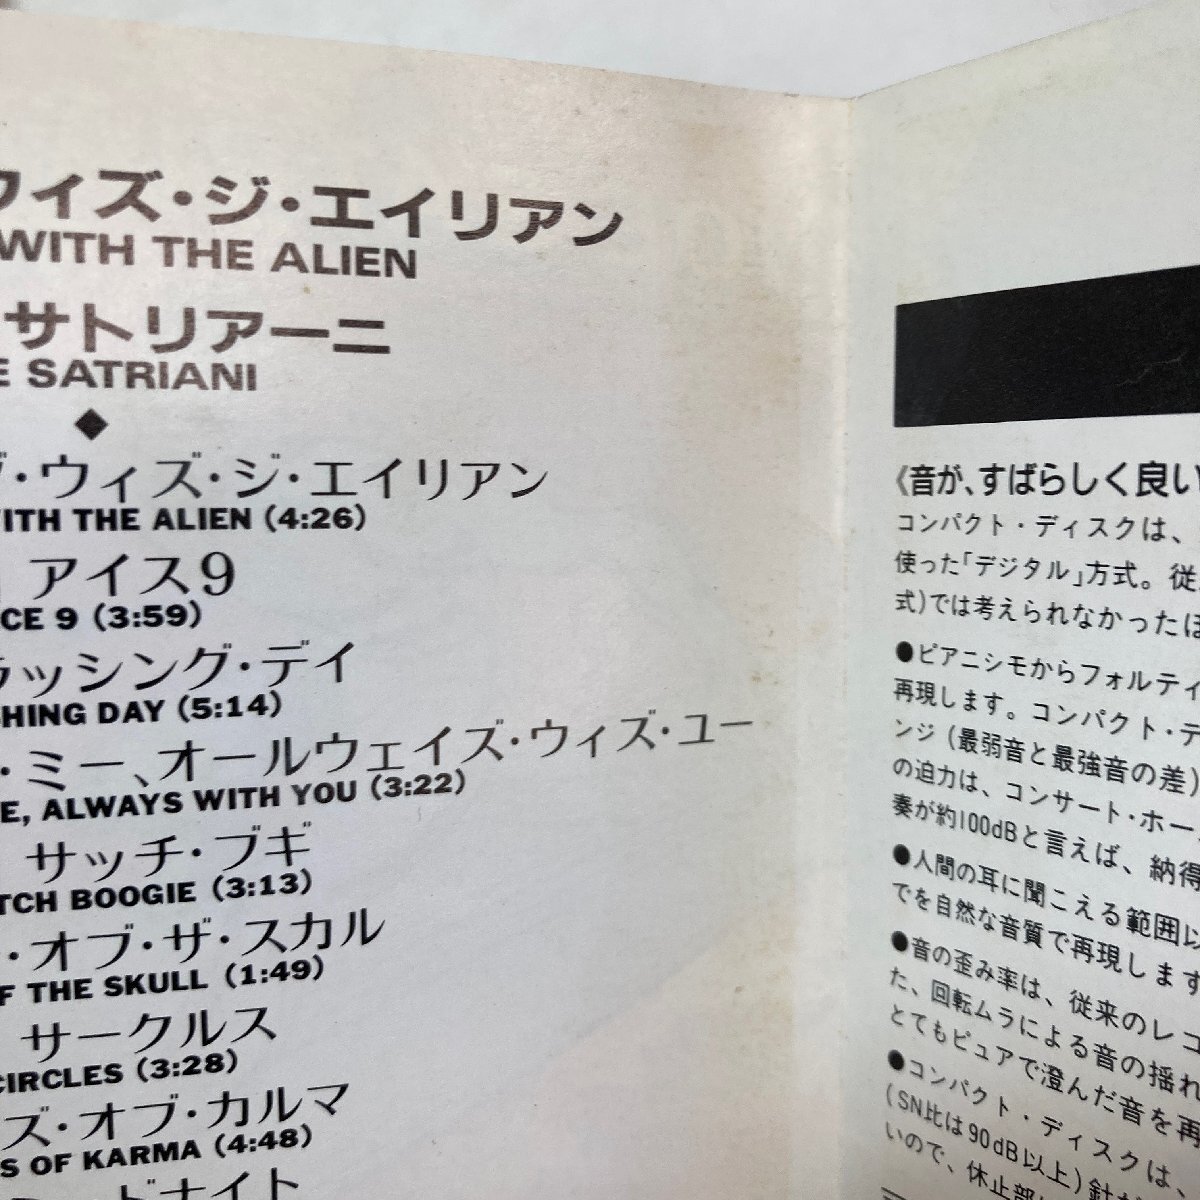 ウィズ・ジ・エイリアン
WITH THE ALIEN
サトリアーニ
E SATRIANI
グ・ウィズ・ジ・エイリアン
WITH THE ALIEN (4:26)
アイス9
ICE 9 (3:59)
ラッシング・デイ
SHING DAY (5:14)
・ミー、オールウェイズ・ウィズ・ユー
E, ALWAYS WITH YOU (3:22)
サッチ・ブギ
TCH BOOGIE (3:13)
・オブ・ザ・スカル
F THE SKULL (1:49)
サークルス
CIRCLES (3:28)
ズ・オブ・カルマ
S OF KARMA (4:48)
ミッドナイト
《音が、すばらしく良い
コンパクト・ディスクは、
使った「デジタル」方式。従
式)では考えられなかったほ
●ピアニシモからフォルティ
再現します。コンパクト・デ
ンジ(最弱音と最強音の差)
の迫力は、コンサート・ホー
奏が約100dBと言えば、納得
●人間の耳に聞こえる範囲以
でを自然な音質で再現します
●音の歪み率は、従来のレコ
た、回転ムラによる音の揺れ
とてもピュアで澄んだ音を再
●コンパクト・ディスクは、
(SN比は90dB以上)針が
いので、休止部